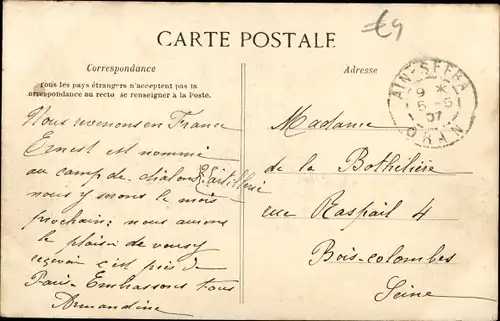 €4
CARTE POSTALE
Correspondance
Tous les pays étrangers n'acceptent pas la
correspondance au recto se renseigner à la Poste.
Adresse
AIN-SEFRA
9 *
5 -5
07
ORAN
Nous revenons en France
Ernest est nommé
au camp de Chalons d'artillerie
nous y serons le mois
prochain; nous aurons
le plaisir de vous y
recevoir c'est près de
Paris Embrassons tous
Armandine
Madame
de la Bothilière
rue Raspail 4
Bois-colombes
Seine